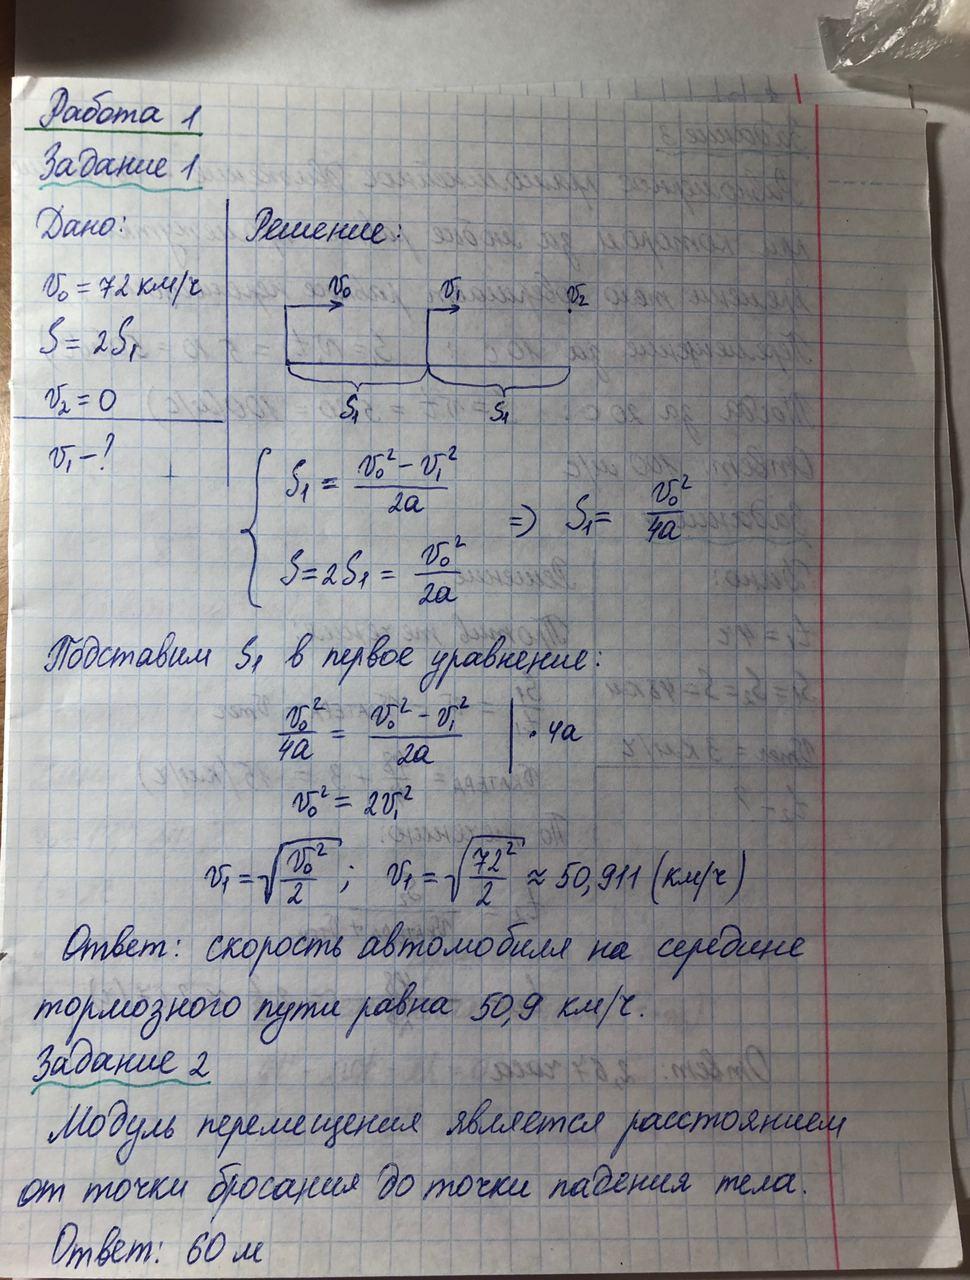 Работа 1
Задание 1
Дано:
Решение:
v₀ = 72 км/ч
S = 2S₁
v₂ = 0
v₁ – ?
v₀ v₁ v₂
S₁ S₁
S₁ = (v₀² – v₁²)/2a
S = 2S₁ = v₀²/2a
=> S₁ = v₀²/4a
Подставим S₁ в первое уравнение:
v₀²/4a = (v₀² – v₁²)/2a | · 4a
v₀² = 2v₁²
v₁ = √(v₀²/2); v₁ = √(72²/2) ≈ 50,911 (км/ч)
Ответ: скорость автомобиля на середине
тормозного пути равна 50,9 км/ч.
Задание 2
Модуль перемещения является расстоянием
от точки бросания до точки падения тела.
Ответ: 60 м